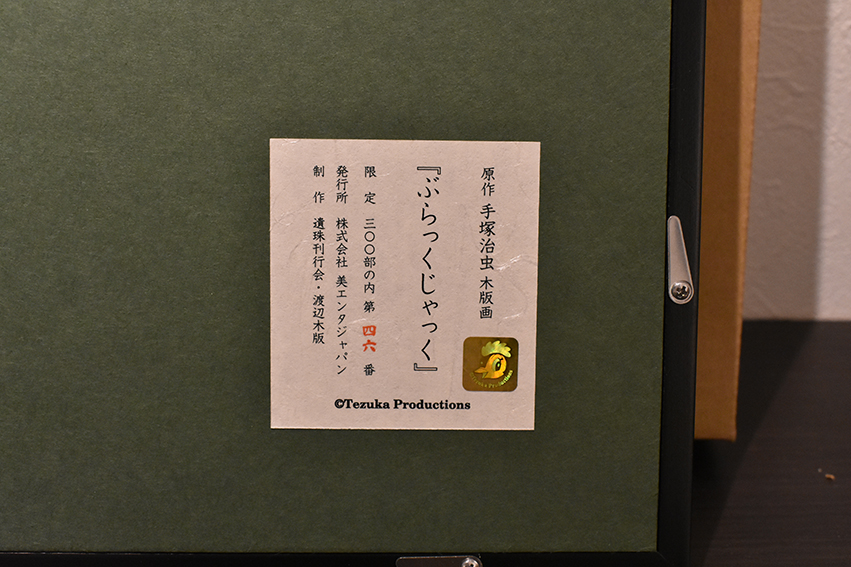 原作 手塚治虫 木版画
『ぶらっくじゃっく』
限定 三〇〇部の内 第 四六 番
発行所 株式会社 美エンタジャパン
制作 遺珠刊行会・渡辺木版
Tezuka Productions
©Tezuka Productions